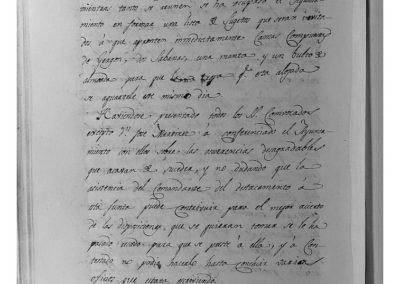 mientras tanto se reunen, se ha ocupado el Ayunta
miento en formar una lista de Sugetos que seran invita
dos á que apronten inmediatamente Camas Compuestas
de Gergon, dos Sabanas, una manta y un bulto de
almoada para que tropa qe. esta alojada
se aquartele este mismo dia.
Haviendose presentado todos los SS. Convocados
excepto Dn. José Martinez á conferenciado el Ayunta
miento con ellos sobre las ocurrencias desagradables
que acavan de suceder, y no dudando que la
asistencia del Comandante del destacamento á
esta junta puede contribuir para el mejor acierto
de las disposiciones, que se quieran tomar se le ha
pasado recado para que se parte á ella, y á Con
testado no podia hacerlo hasta concluir varios
oficios que estava poniendo.